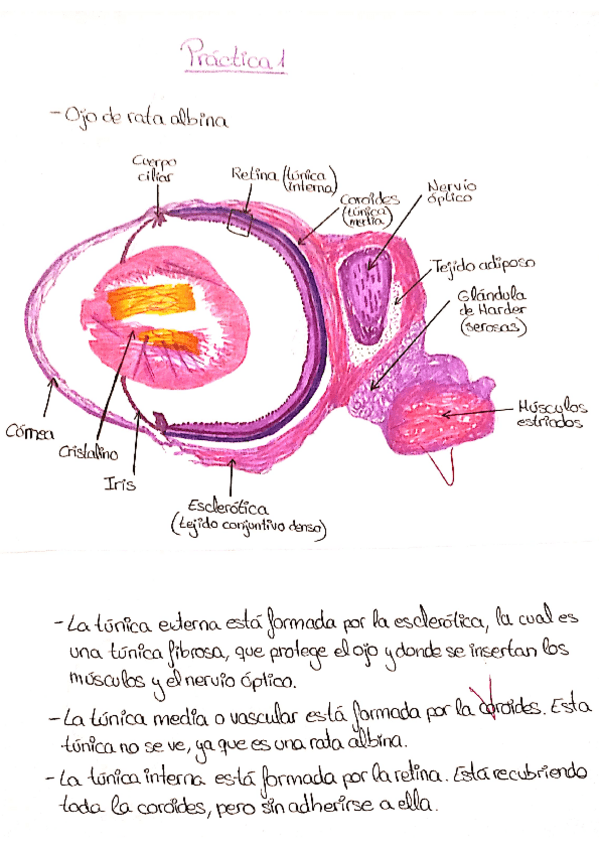 Práctica 1
- Ojo de rata albina
Cuerpo
ciliar
Retina (túnica
interna)
Coroides
(túnica
media)
Nervio
óptico
Tejido adiposo
Glándula
de Harder
(serosas)
Músculos
estriados
Córnea
Cristalino
Iris
Esclerótica
(tejido conjuntivo denso)
- La túnica externa está formada por la esclerótica, la cual es
una túnica fibrosa, que protege el ojo y donde se insertan los
músculos y el nervio óptico.
- La túnica media o vascular está formada por la coroides. Esta
túnica no se ve, ya que es una rata albina.
- La túnica interna está formada por la retina. Está recubriendo
toda la coroides, pero sin adherirse a ella.